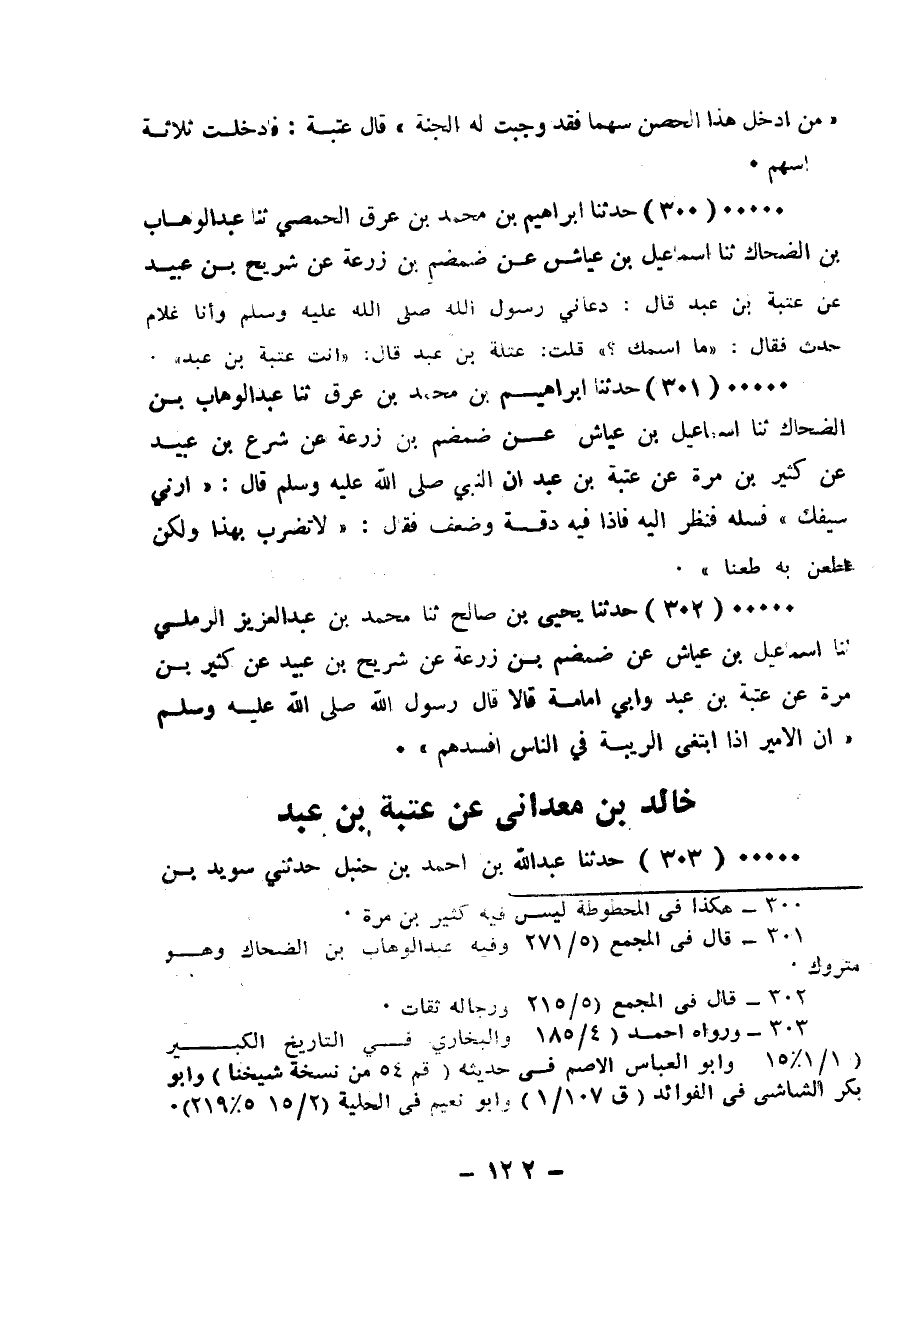 « من ادخل هذا الحصن سهما فقد وجبت له الجنة » قال عتبة : فأدخلت ثلاثة
اسهم ٠
٠٠٠٠٠ ( ٣٠٠ ) حدثنا ابراهيم بن محمد بن عرق الحمصي ثنا عبدالوهاب
بن الضحاك ثنا اسماعيل بن عياش عن ضمضم بن زرعة عن شريح بن عبيد
عن عتبة بن عبد قال : دعاني رسول الله صلى الله عليه وسلم وأنا غلام
حدث فقال : «ما اسمك ؟» قلت: عتلة بن عبد قال: «انت عتبة بن عبد» ٠
٠٠٠٠٠ ( ٣٠١ ) حدثنا ابراهيم بن محمد بن عرق ثنا عبدالوهاب بن
الضحاك ثنا اسماعيل بن عياش عن ضمضم بن زرعة عن شرع بن عبيد
عن كثير بن مرة عن عتبة بن عبد ان النبي صلى الله عليه وسلم قال : « ارني
سيفك » فسله فنظر اليه فاذا فيه دقة وضعف فقال : « لاتضرب بهذا ولكن
اطعن به طعنا » ٠
٠٠٠٠٠ ( ٣٠٢ ) حدثنا يحيى بن صالح ثنا محمد بن عبدالعزيز الرملي
ثنا اسماعيل بن عياش عن ضمضم بن زرعة عن شريح بن عبيد عن كثير بن
مرة عن عتبة بن عبد وابي امامة قالا قال رسول الله صلى الله عليه وسلم
« ان الامير اذا ابتغى الريبة في الناس افسدهم » ٠
خالد بن معدانى عن عتبة بن عبد
٠٠٠٠٠ ( ٣٠٣ ) حدثنا عبدالله بن احمد بن حنبل حدثني سويد بن
٣٠٠ ــ هكذا فى المخطوطة ليس فيه كثير بن مرة ٠
٣٠١ ــ قال فى المجمع (٥/٢٧١ وفيه عبدالوهاب بن الضحاك وهو
متروك ٠
٣٠٢ ــ قال فى المجمع (٥/٢١٥ ورجاله ثقات ٠
٣٠٣ ــ ورواه احمد ( ٤/١٨٥ والبخاري في التاريخ الكبير
( ١/١/٪١٥ وابو العباس الاصم في حديثه ( قم ٥٤ من نسخة شيخنا ) وابو
بكر الشاشى فى الفوائد ( ق ١٠٧/١ ) وابو نعيم فى الحلية (٢/١٥ ٥٪٢١٩)٠
ــ ١٢٢ ــ